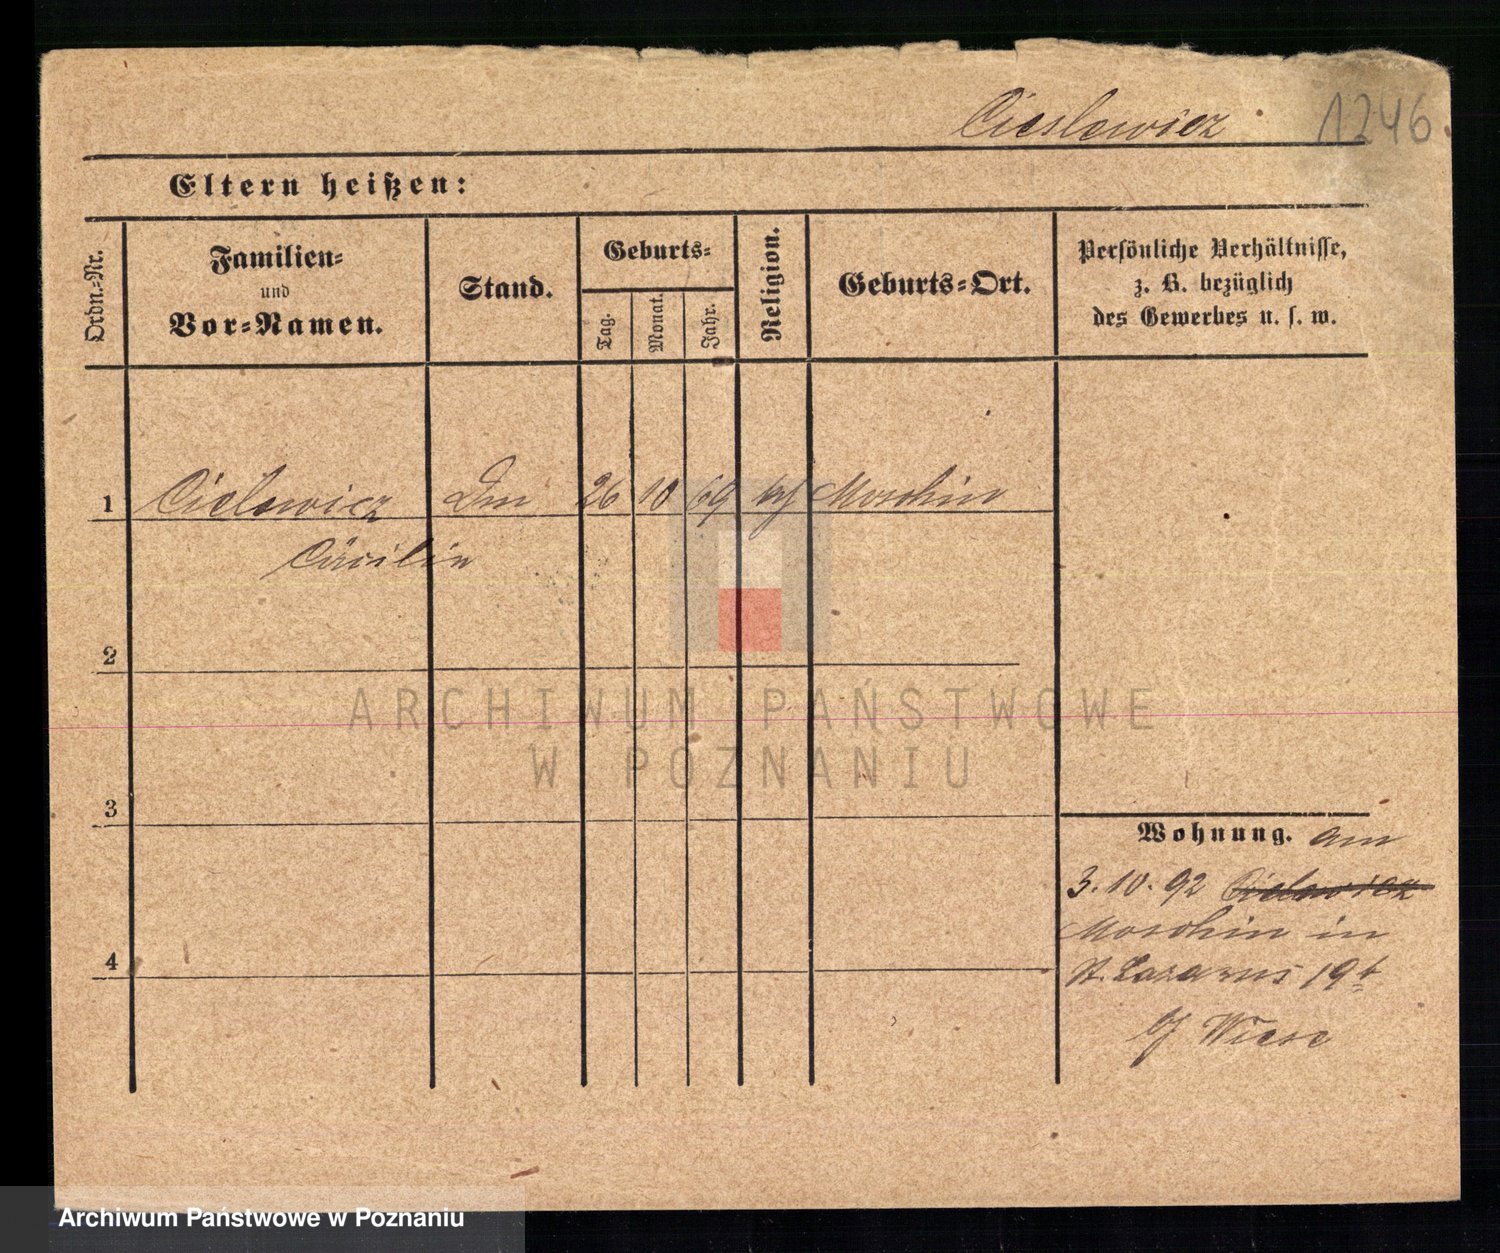 Cieslewicz 1246.
Eltern heißen:
Ordn.-Nr.
Familien-
und
Vor-Namen.
Stand.
Geburts-
Tag.
Monat.
Jahr.
Religion.
Geburts-Ort.
Persönliche Verhältnisse,
z. B. bezüglich
des Gewerbes u. s. w.
1 Cielewicz 26 10 69 Moschin
Cäcilie
2
3
4
Wohnung. am
3.10.92 Cielewicz
Moschin in
St. Lazarus 19b
b/ Wiese
ARCHIWUM PAŃSTWOWE
W POZNANIU
Archiwum Państwowe w Poznaniu